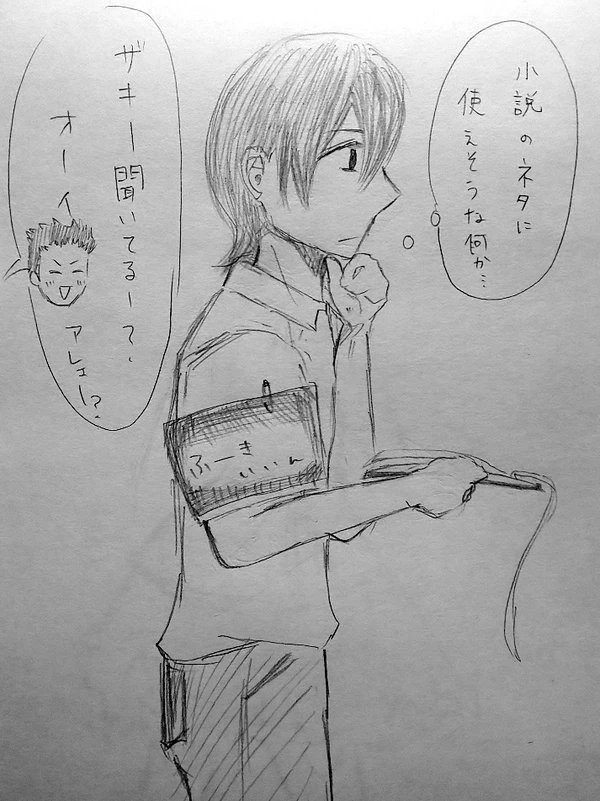 小説のネタに
使えそうな何か…
ザキー聞いてるーて、
オーイ
アレェー?
ふーき
いいん